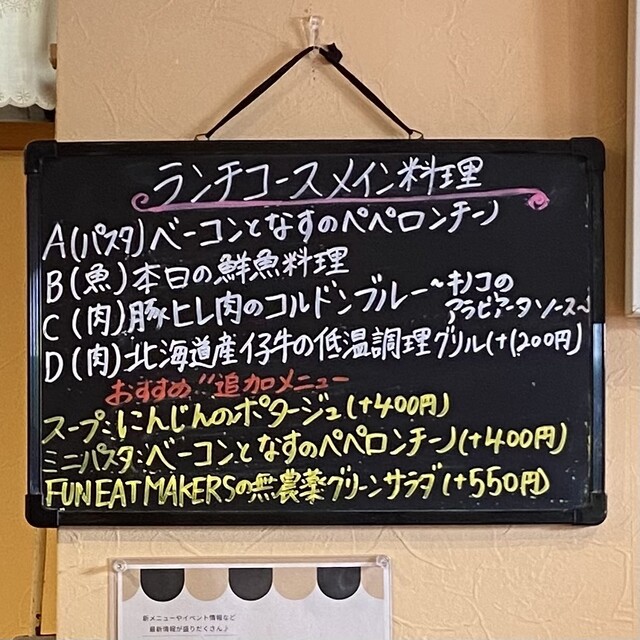 ランチコースメイン料理
A(パスタ)ベーコンとなすのペペロンチーノ
B(魚)本日の鮮魚料理
C(肉)豚ヒレ肉のコルドンブルー~キノコの
アラビアータソース~
D(肉)北海道産仔牛の低温調理グリル(+1200円)
おすすめ"追加メニュー
スープ:にんじんのポタージュ(+400円)
ミニパスタ:ベーコンとなすのペペロンチーノ(+400円)
FUN EAT MAKERSの無農薬グリーンサラダ(+550円)
新メニューやイベント情報など
最新情報が盛りだくさん♪